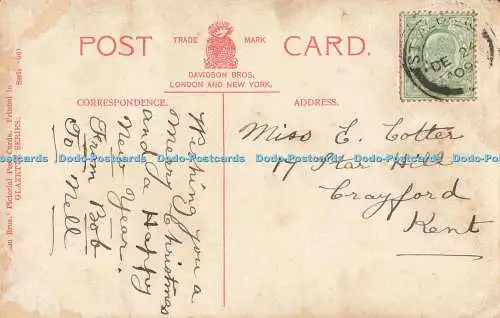 POST CARD.
TRADE MARK
DAVIDSON BROS.
LONDON AND NEW YORK.
CORRESPONDENCE.
ADDRESS.
Wishing you a
Merry Christmas
and a Happy
New Year.
From Bob
To Nell
Miss E. Cotter
Star Hill
Crayford
Kent
DE 24
09
Bros." Pictorial Post Cards. Printed in
GLAZETTE SERIES.
Dodo-Postcards Dodo-Postcards Dodo-Postcards Dodo-Postcards Dodo-Postcards